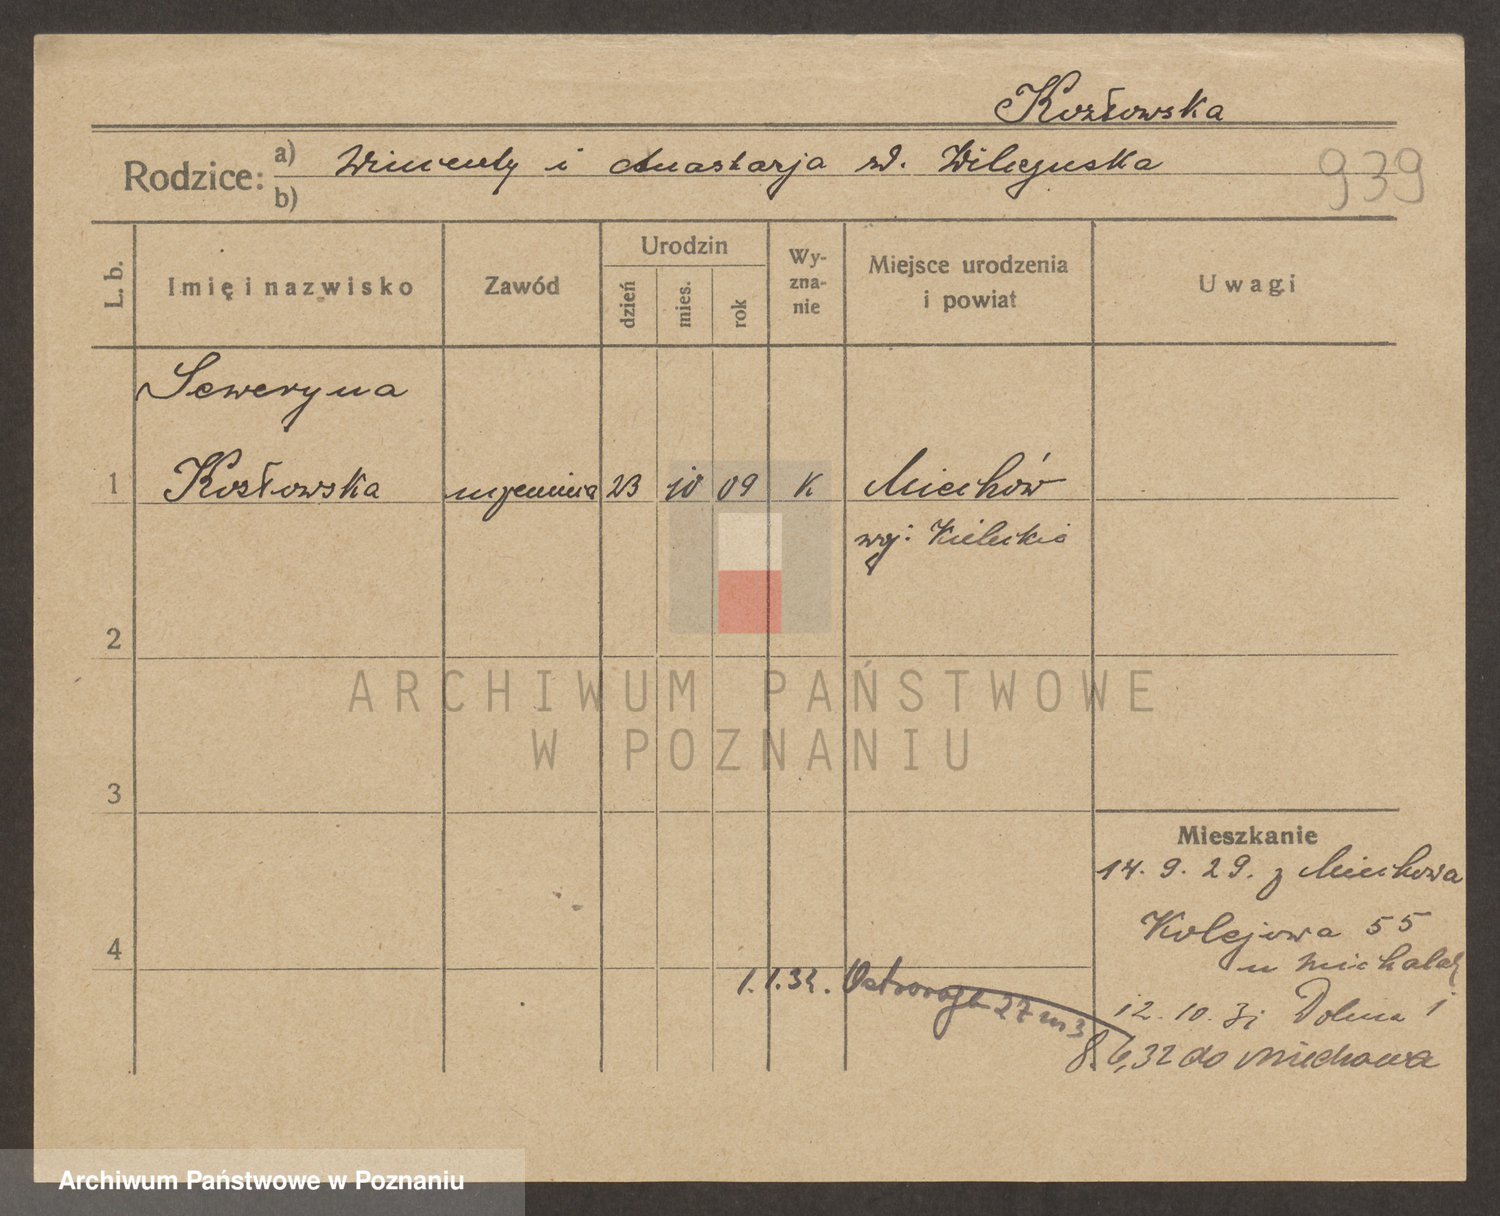 Kozłowska
Rodzice: a) Wincenty i Anastazja zd.
b)
939
L. b.
Imię i nazwisko
Zawód
Urodzin
dzień
mies.
rok
Wy-
zna-
nie
Miejsce urodzenia
i powiat
Uwagi
Seweryna
1 Kozłowska uczennica 23 10 09 K Miechów
woj: Kieleckie
2
3
4
Mieszkanie
14. 9. 29. z Miechowa
Kolejowa 55
u
12. 10. 31 Dolina 1
1.1.32. Ostroroga 27 m 3
8.6,32 do Miechowa
ARCHIWUM PAŃSTWOWE
W POZNANIU
Archiwum Państwowe w Poznaniu